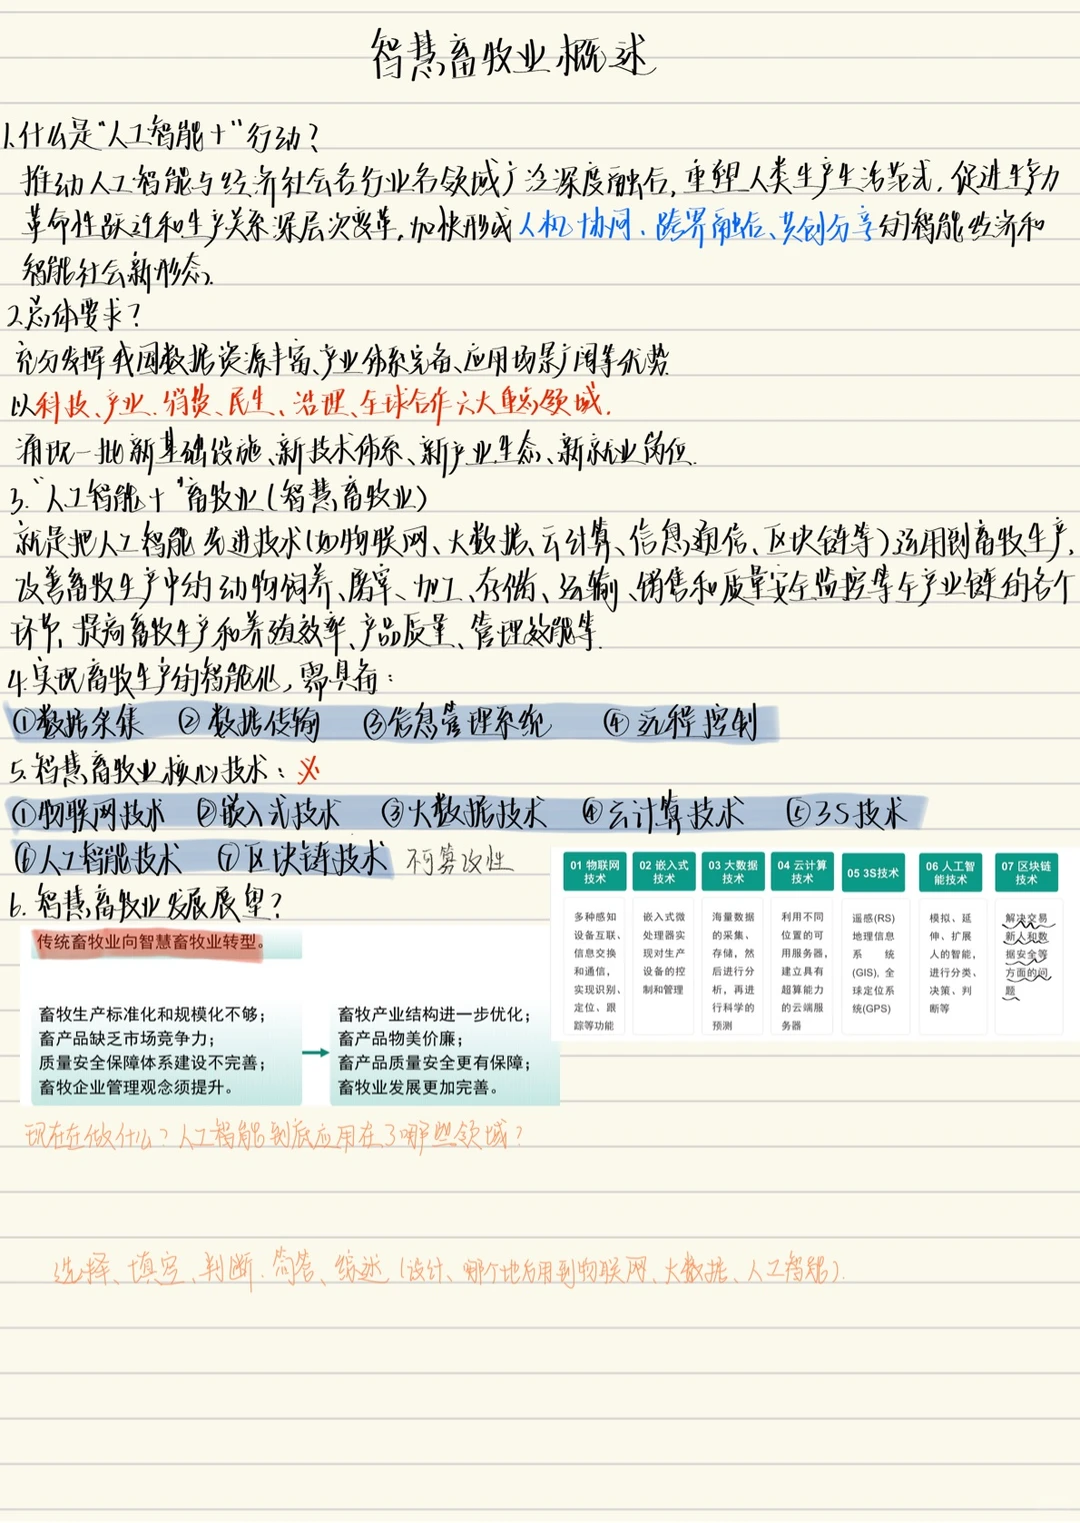 智慧畜牧业概述
1.什么是"人工智能+"行动？
推动人工智能与经济社会各行业各领域广泛深度融合,重塑人类生产生活范式,促进生产力
革命性跃迁和生产关系深层次变革,加快形成人机协同、跨界融合、共创分享的智能经济和
智能社会新形态.
2.总体要求？
充分发挥我国数据资源丰富、产业体系完备、应用场景广阔等优势.
以科技、产业、消费、民生、治理、全球合作六大重点领域.
涌现一批新基础设施、新技术体系、新产业生态、新就业岗位.
3."人工智能+"畜牧业(智慧畜牧业)
就是把人工智能先进技术(如物联网、大数据、云计算、信息通信、区块链等)运用到畜牧生产,
改善畜牧生产中的动物饲养、屠宰、加工、存储、运输、销售和质量安全监控等全产业链的各个
环节,提高畜牧生产和养殖效率、产品质量、管理效能等.
4.实现畜牧生产的智能化,需具备：
①数据采集 ②数据传输 ③信息管理系统 ④远程控制
5.智慧畜牧业核心技术：必
①物联网技术 ②嵌入式技术 ③大数据技术 ④云计算技术 ⑤3S技术
⑥人工智能技术 ⑦区块链技术 不可篡改性
01 物联网
技术
多种感知
设备互联、
信息交换
和通信，
实现识别、
定位、跟
踪等功能
02 嵌入式
技术
嵌入式微
处理器实
现对生产
设备的控
制和管理
03 大数据
技术
海量数据
的采集、
存储，然
后进行分
析，再进
行科学的
预测
04 云计算
技术
利用不同
位置的可
用服务器，
建立具有
超算能力
的云端服
务器
05 3S技术
遥感(RS)
地理信息
系 统
(GIS), 全
球定位系
统(GPS)
06 人工智
能技术
模拟、延
伸、扩展
人的智能，
进行分类、
决策、判
断等
07 区块链
技术
解决交易
新人和数
据安全等
方面的问
题
6.智慧畜牧业发展展望？
传统畜牧业向智慧畜牧业转型。
畜牧生产标准化和规模化不够；
畜产品缺乏市场竞争力；
质量安全保障体系建设不完善；
畜牧企业管理观念须提升。
畜牧产业结构进一步优化；
畜产品物美价廉；
畜产品质量安全更有保障；
畜牧业发展更加完善。
现在在做什么？人工智能到底应用在了哪些领域？
选择、填空、判断、简答、综述(设计、哪个地方用到物联网、大数据、人工智能).